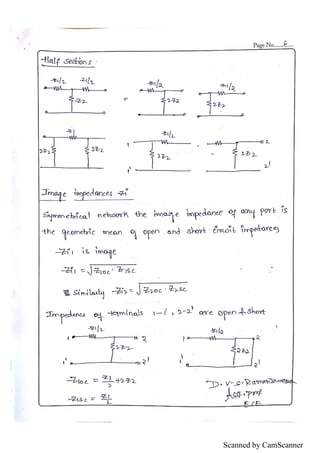 Page No......6...
Half sections:
Z1/2 Z1/2 Z1/2 Z1/2
2Z2 = 2Z2 2Z2
Z1 Z1/2
2Z2 2Z2 1 2Z2 2 2Z2
1' 2'
Image impedances - Zi
Symmetrical network the image impedance of any port is
the geometric mean of open and short circuit impedances
Zi1 is image
Zi1 = √Z1oc . Z1sc
Similarly Zi2 = √Z2oc . Z2sc
Impedance of terminals 1-1', 2-2' are open & short
Z1/2 Z1/2
1 2 1 2
2Z2 2Z2
1' 2' 1' 2'
Z1oc = Z1/2 + 2Z2
Z1sc = Z1/2
Asst. prof
ECE
Scanned by CamScanner